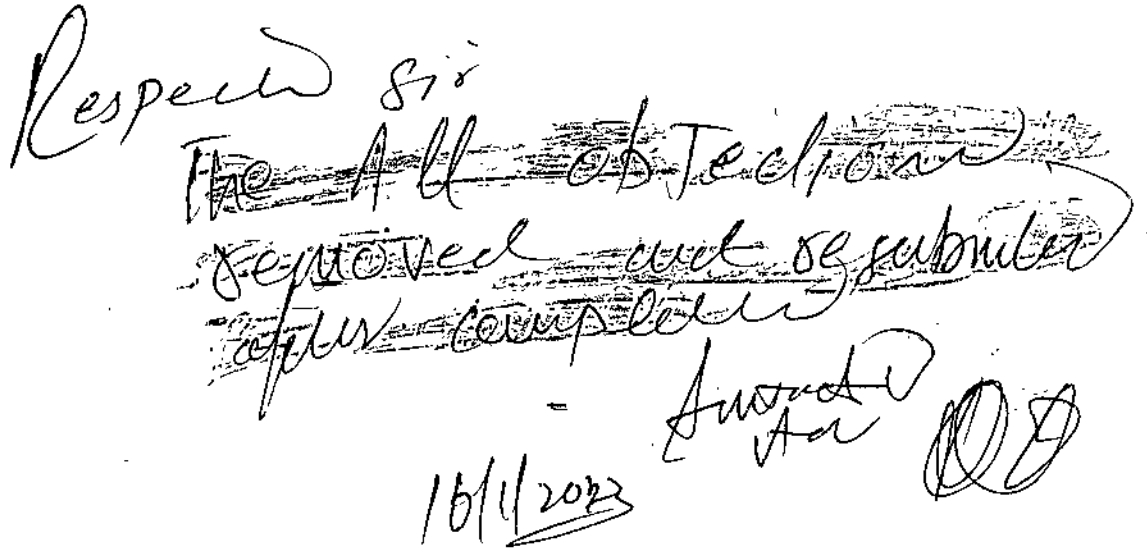 Respected Sir
The All objections
removed and resubmitted
after completion
16/1/2023